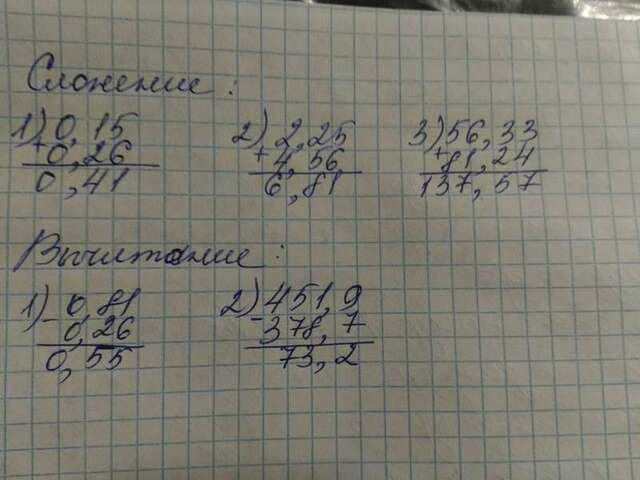 Сложение:
1) 0,15 2) 2,25 3) 56,33
+ 0,26 + 4,56 + 81,24
0,41 6,81 137,57
Вычитание:
1) 0,81 2) 451,9
- 0,26 - 378,7
0,55 73,2